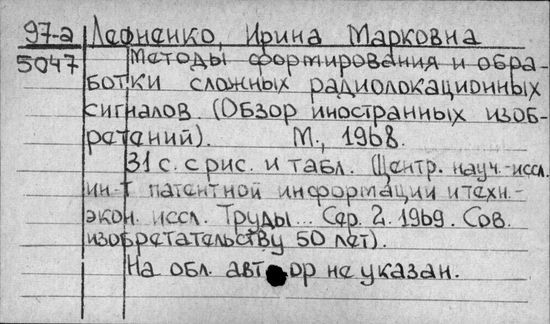 97-а Лефненко, Ирина Марковна
5047 Методы формирования и обра-
ботки сложных радиолокационных
сигналов. (Обзор иностранных изоб-
ретений). М., 1968.
31 с. с рис. и табл. (Центр. науч.-иссл.
ин-т патентной информации и техн.-
экон. иссл. Труды... Сер. 2. 1969. Сов.
изобретательству 50 лет).
На обл. автор не указан.